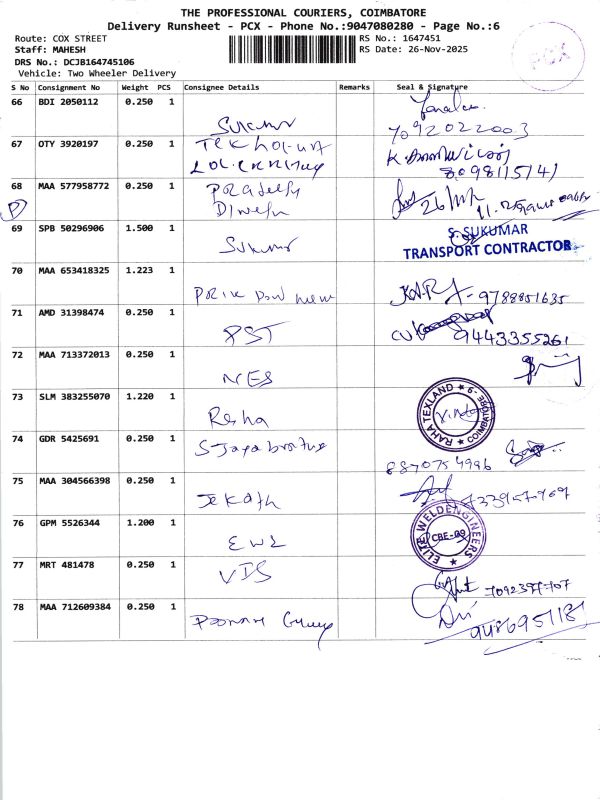 THE PROFESSIONAL COURIERS, COIMBATORE
Delivery Runsheet - PCX - Phone No.:9047080280 - Page No.:6
Route: COX STREET
RS No.: 1647451
Staff: MAHESH
RS Date: 26-Nov-2025
DRS No.: DCJB164745106
Vehicle: Two Wheeler Delivery
PCX
S No Consignment No Weight PCS Consignee Details Remarks Seal & Signature
66 BDI 2050112 0.250 1
Sukumar
7092022003
67 OTY 3920197 0.250 1
8098115741
68 MAA 577958772 0.250 1
26/11
69 SPB 50296906 1.500 1
Sukumar
S. SUKUMAR
TRANSPORT CONTRACTOR
70 MAA 653418325 1.223 1
9788851635
71 AMD 31398474 0.250 1
PST
9443355261
72 MAA 713372013 0.250 1
NES
73 SLM 383255070 1.220 1
Raha
RAHA TEXLAND ★ COIMBATORE-9 ★
74 GDR 5425691 0.250 1
75 MAA 304566398 0.250 1
76 GPM 5526344 1.200 1
EWE
ELITE WELDENGINEERS ★ CBE-09
77 MRT 481478 0.250 1
VIS
78 MAA 712609384 0.250 1
9486951181